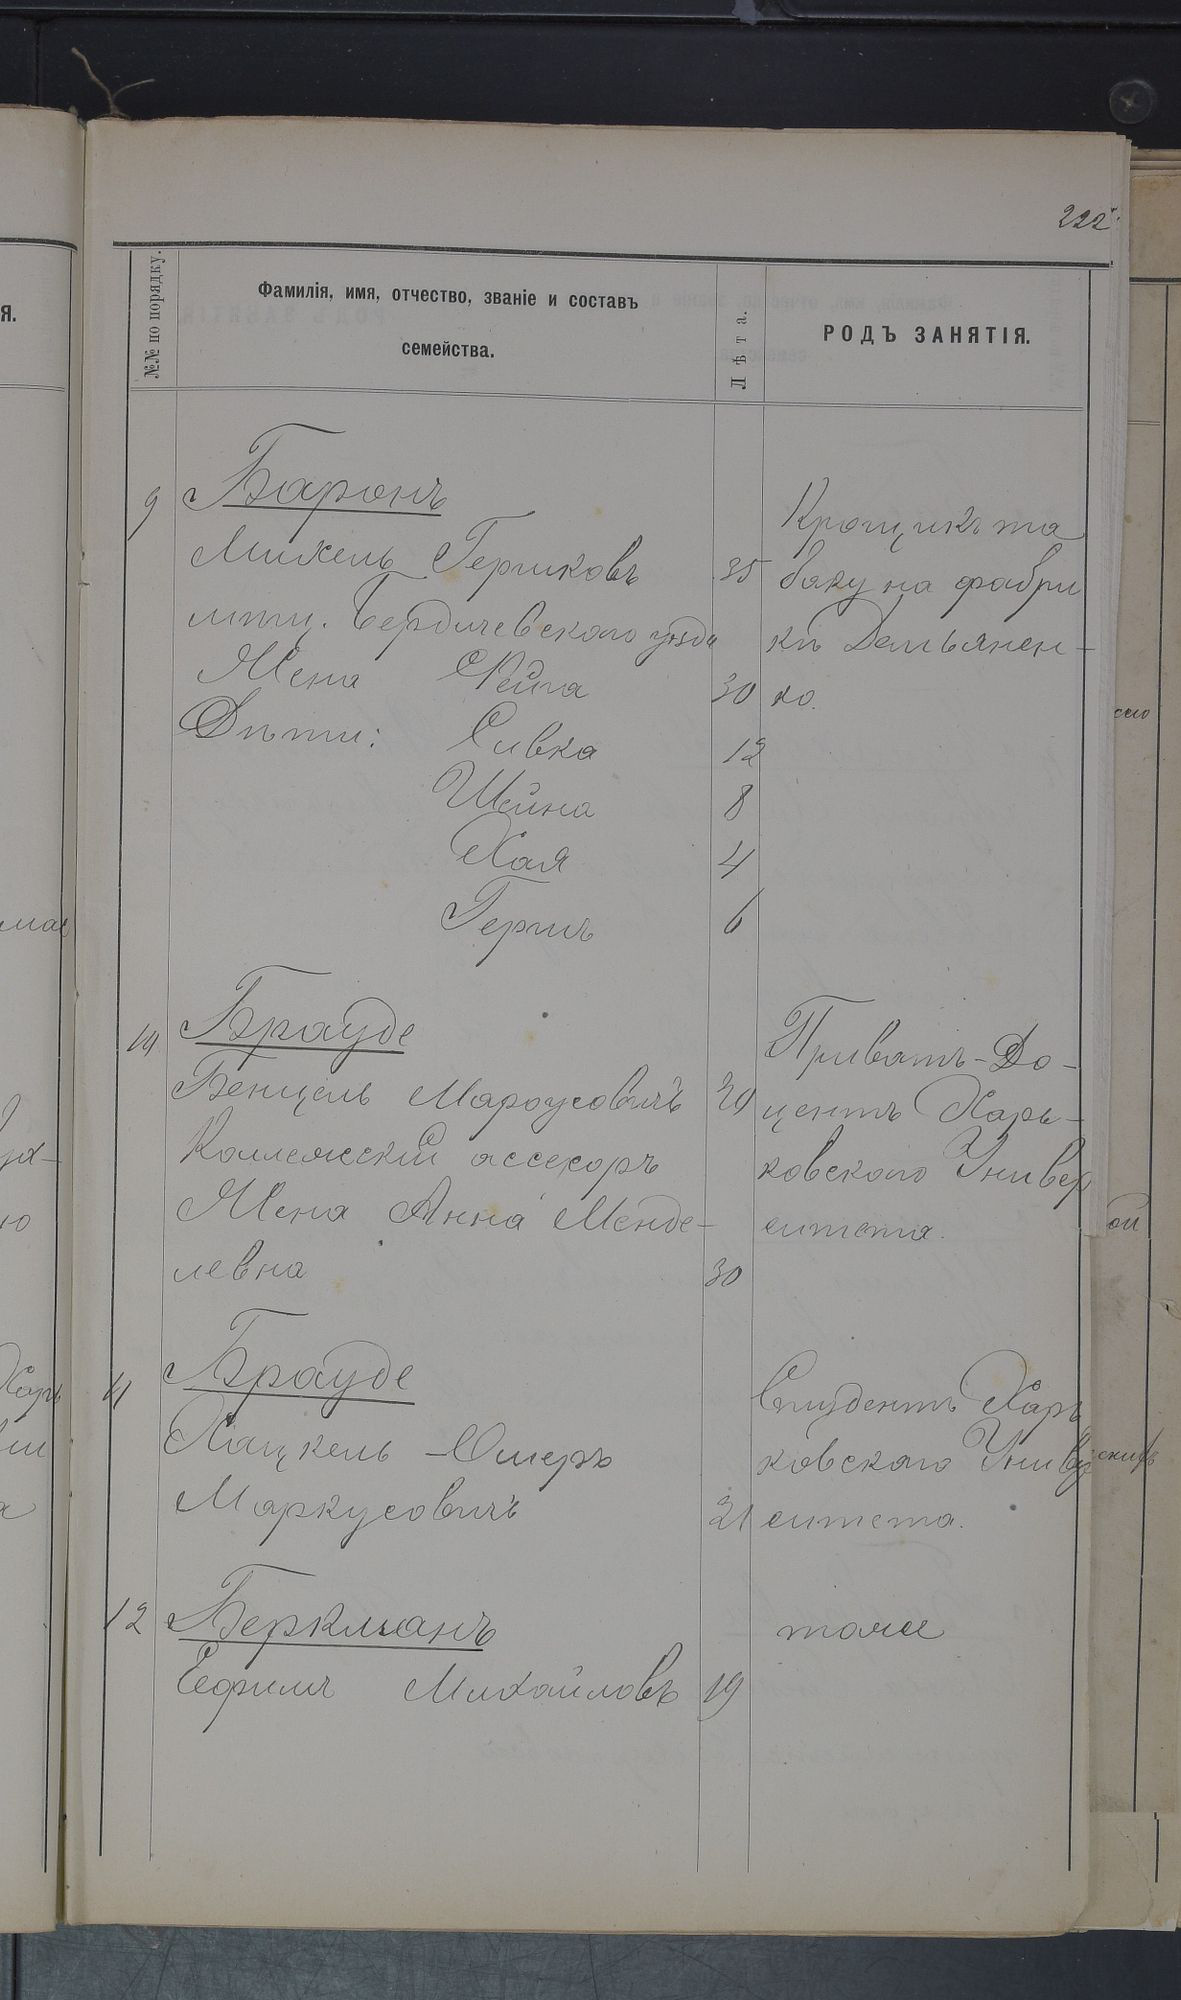 222
№№ по порядку.
Фамилія, имя, отчество, званіе и составъ
семейства.
Лѣта.
РОДЪ ЗАНЯТІЯ.
9
Баронъ
Михель Гершковъ 35
мѣщ. Бердичевского уѣзда
Жена Рейза 30
Дѣти: Сивка 12
Шейна 8
Хая 4
Гершъ 6
Крошикъ та
баку на фабри
кѣ Демьянен-
ко.
10
Брауде
Бенцель Маркусовичъ 30
Коллежскій ассесоръ
Жена Анна Менде-
левна 30
Приватъ-До-
центъ Харь-
ковского Универ
ситета.
11
Брауде
Хацкель-Ошеръ
Маркусовичъ 21
Студентъ Харь
ковского Универ
ситета.
12
Беркманъ
Ефимъ Михайловъ 19
тоже